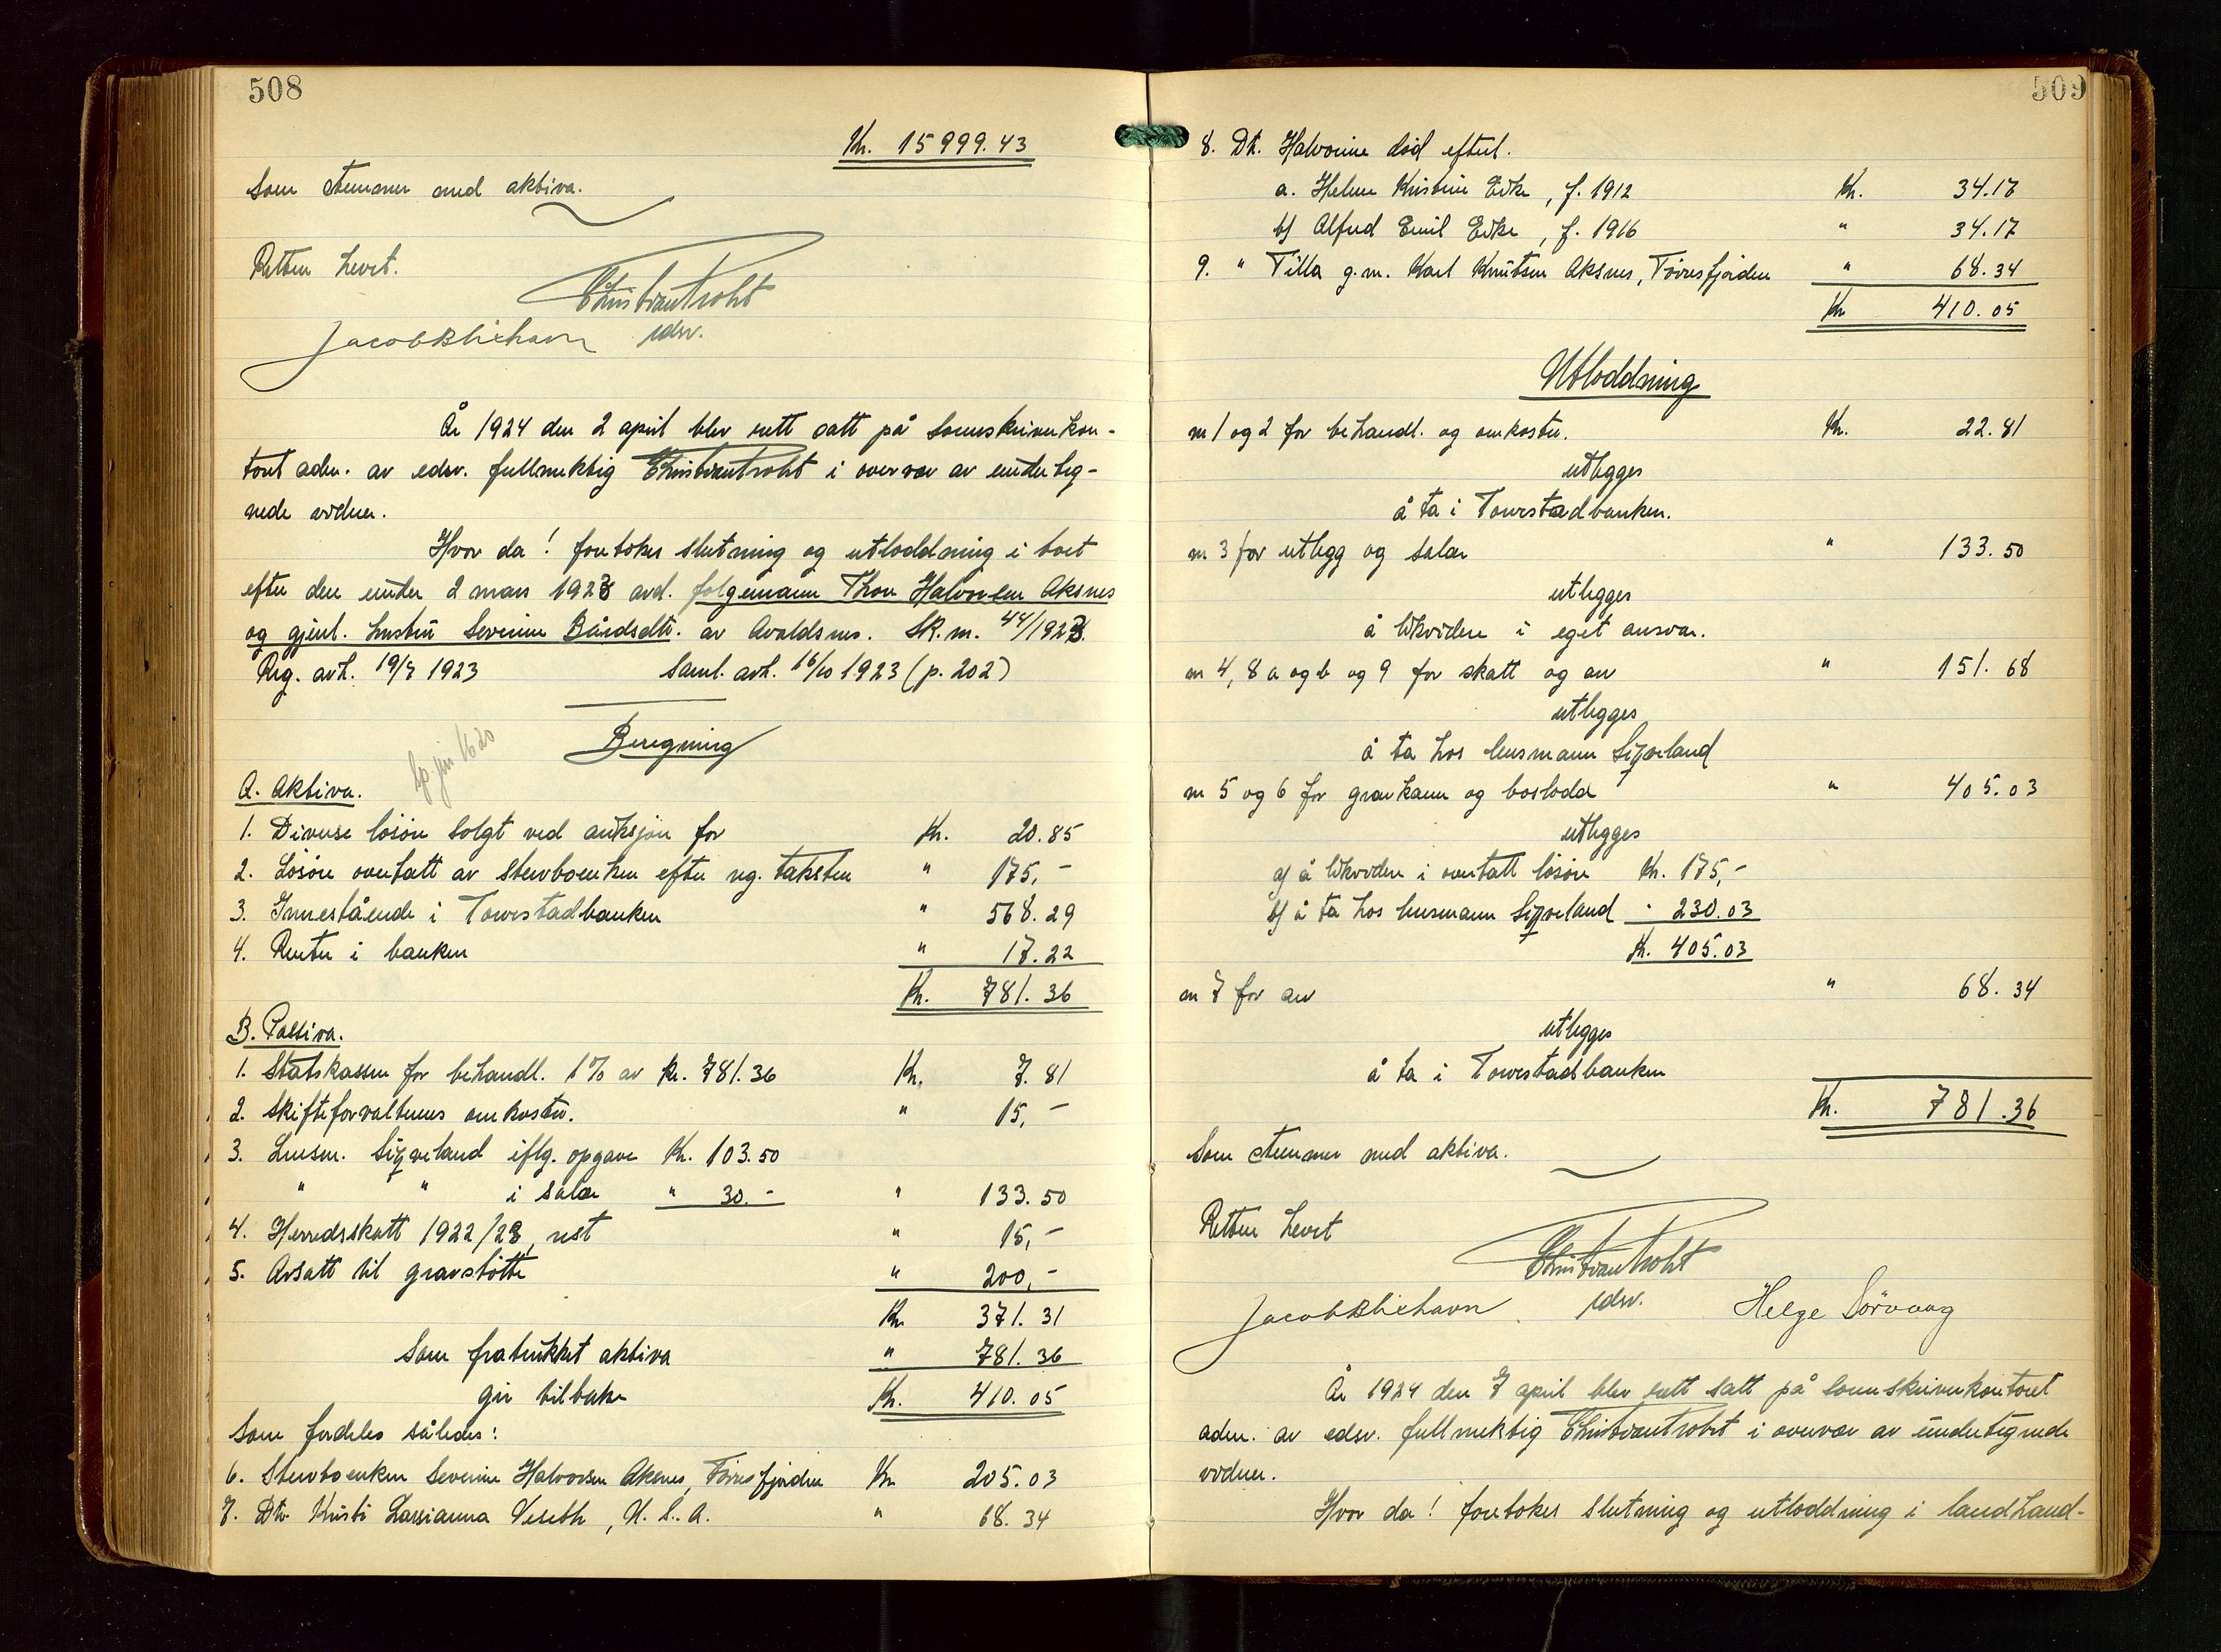 508
Kr. 15999.43
Som stemmer med aktiva.
Retten hevet.
Christian Troht
Jacob Blichavn edsv.
År 1924 den 2 april blev rett satt på sorenskriverkon-
toret adm. av edsv. fullmektig Christian Troht i overvær av underteg-
nede vidner.
Hvor da! foretokes slutning og utloddning i boet
efter den under 2 mars 1923 avd. følgemann Thore Halvorsen Aksnes
og gjenl. hustru Severine Bårdsdtr. av Avaldsnes. Sk.nr. 44/1923.
Reg. avh. 19/3 1923 Saml. avh. 16/10 1923 (p. 202)
Beregning
A. Aktiva.
1. Diverse løsøre solgt ved auksjon for Kr. 20.85
2. Løsøre overtatt av stervboenken efter reg. taksten " 175,-
3. Innestående i Torvestadbanken " 568.29
4. Renter i banken " 17.22
Kr. 781.36
B. Passiva.
1. Statskassen for behandl. 1% av kr. 781.36 Kr. 7.81
2. Skifteforvalterens omkostn. " 15,-
3. Lensm. Sigveland iflg. opgave Kr. 103.50
" " i salær " 30.- " 133.50
4. Herredsskatt 1922/23, rest " 15,-
5. Avsatt til gravstøtte " 200,-
Kr. 371.31
Som fratrukket aktiva " 781.36
gir tilbake Kr. 410.05
Som fordeles således:
6. Stervboenken Severine Halvorsen Aksnes, Førresfjorden Kr. 205.03
7. Dtr. Kristi Larsianna Veseth, U.S.A. " 68.34
509
8. Dt. Halvorine død efterl.
a. Helene Kristine Eike, f. 1912 Kr. 34.17
b) Alfred Emil Eike, f. 1916 " 34.17
9. " Tilla g.m. Karl Knutsen Aksnes, Førresfjorden " 68.34
Kr 410.05
Utloddning
nr 1 og 2 for behandl. og omkostn. Kr. 22.81
utlegges
å ta i Torvestadbanken.
nr 3 for utlegg og salær " 133.50
utlegges
å likvidere i eget ansvar.
nr 4, 8 a og b og 9 for skatt og arv " 151.68
utlegges
å ta hos lensmann Sigveland
nr 5 og 6 for gravkaun og boslodd " 405.03
utlegges
a) å likvidere i overtatt løsøre Kr. 175,-
b) å ta hos lensmann Sigveland " 230.03
Kr. 405.03
nr 7 for arv " 68.34
utlegges
å ta i Torvestadbanken
Kr. 781.36
Som stemmer med aktiva.
Retten hevet
Christian Troht
Jacob Blichavn edsv. Helge Sørvaag
År 1924 den 7 april blev rett satt på sorenskriverkontoret
adm. av edsv. fullmektig Christian Troht i overvær av undertegnede
vidner.
Hvor da! foretokes slutning og utloddning i landhand-